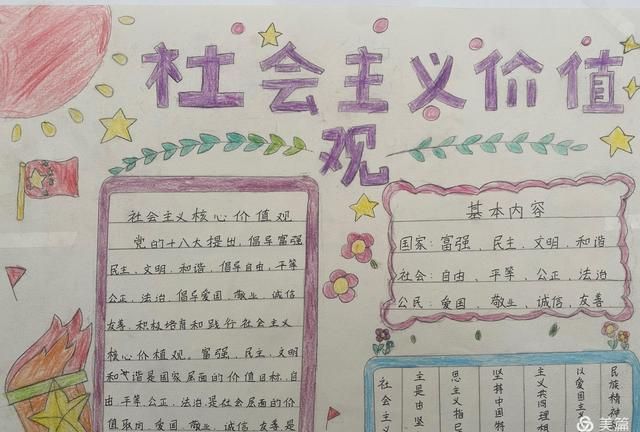 社会主义价值
观
社会主义核心价值观
党的十八大提出,倡导富强
民主、文明、和谐,倡导自由、平等
公正、法治,倡导爱国、敬业、诚信
友善,积极培育和践行社会主义
核心价植观。富强、民主、文明
和谐是国家层面的价值目标,自
由、平等、公正、法治是社会层面的价
值取向,爱国、敬业、诚信、友善是
基本内容
国家:富强、民主、文明、和谐
社会:自由、平等、公正、法治
公民:爱国、敬业、诚信、友善
社会主义
主是由坚
思主义指
坚持中国特
主义共同理
以爱国主
民族精神
美篇